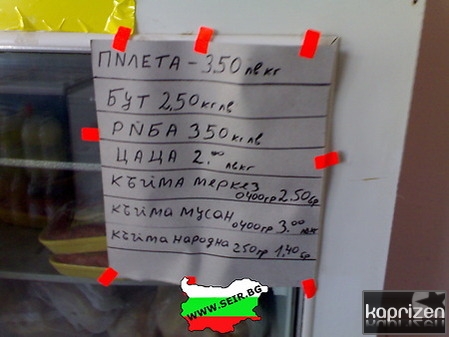 ПИЛЕТА - 3,50 лв кг
БУТ 2,50 кг лв
РИБА 350 кг лв
ЦАЦА 2.00 лв кг
КЪЙМА МЕРКЕЗ 0400гр 2.50 бр
КЪЙМА МУСАН 0400гр 3.00
КЪЙМА НАРОДНА 250гр 1,40 бр
WWW.SEIR.BG
kaprizen